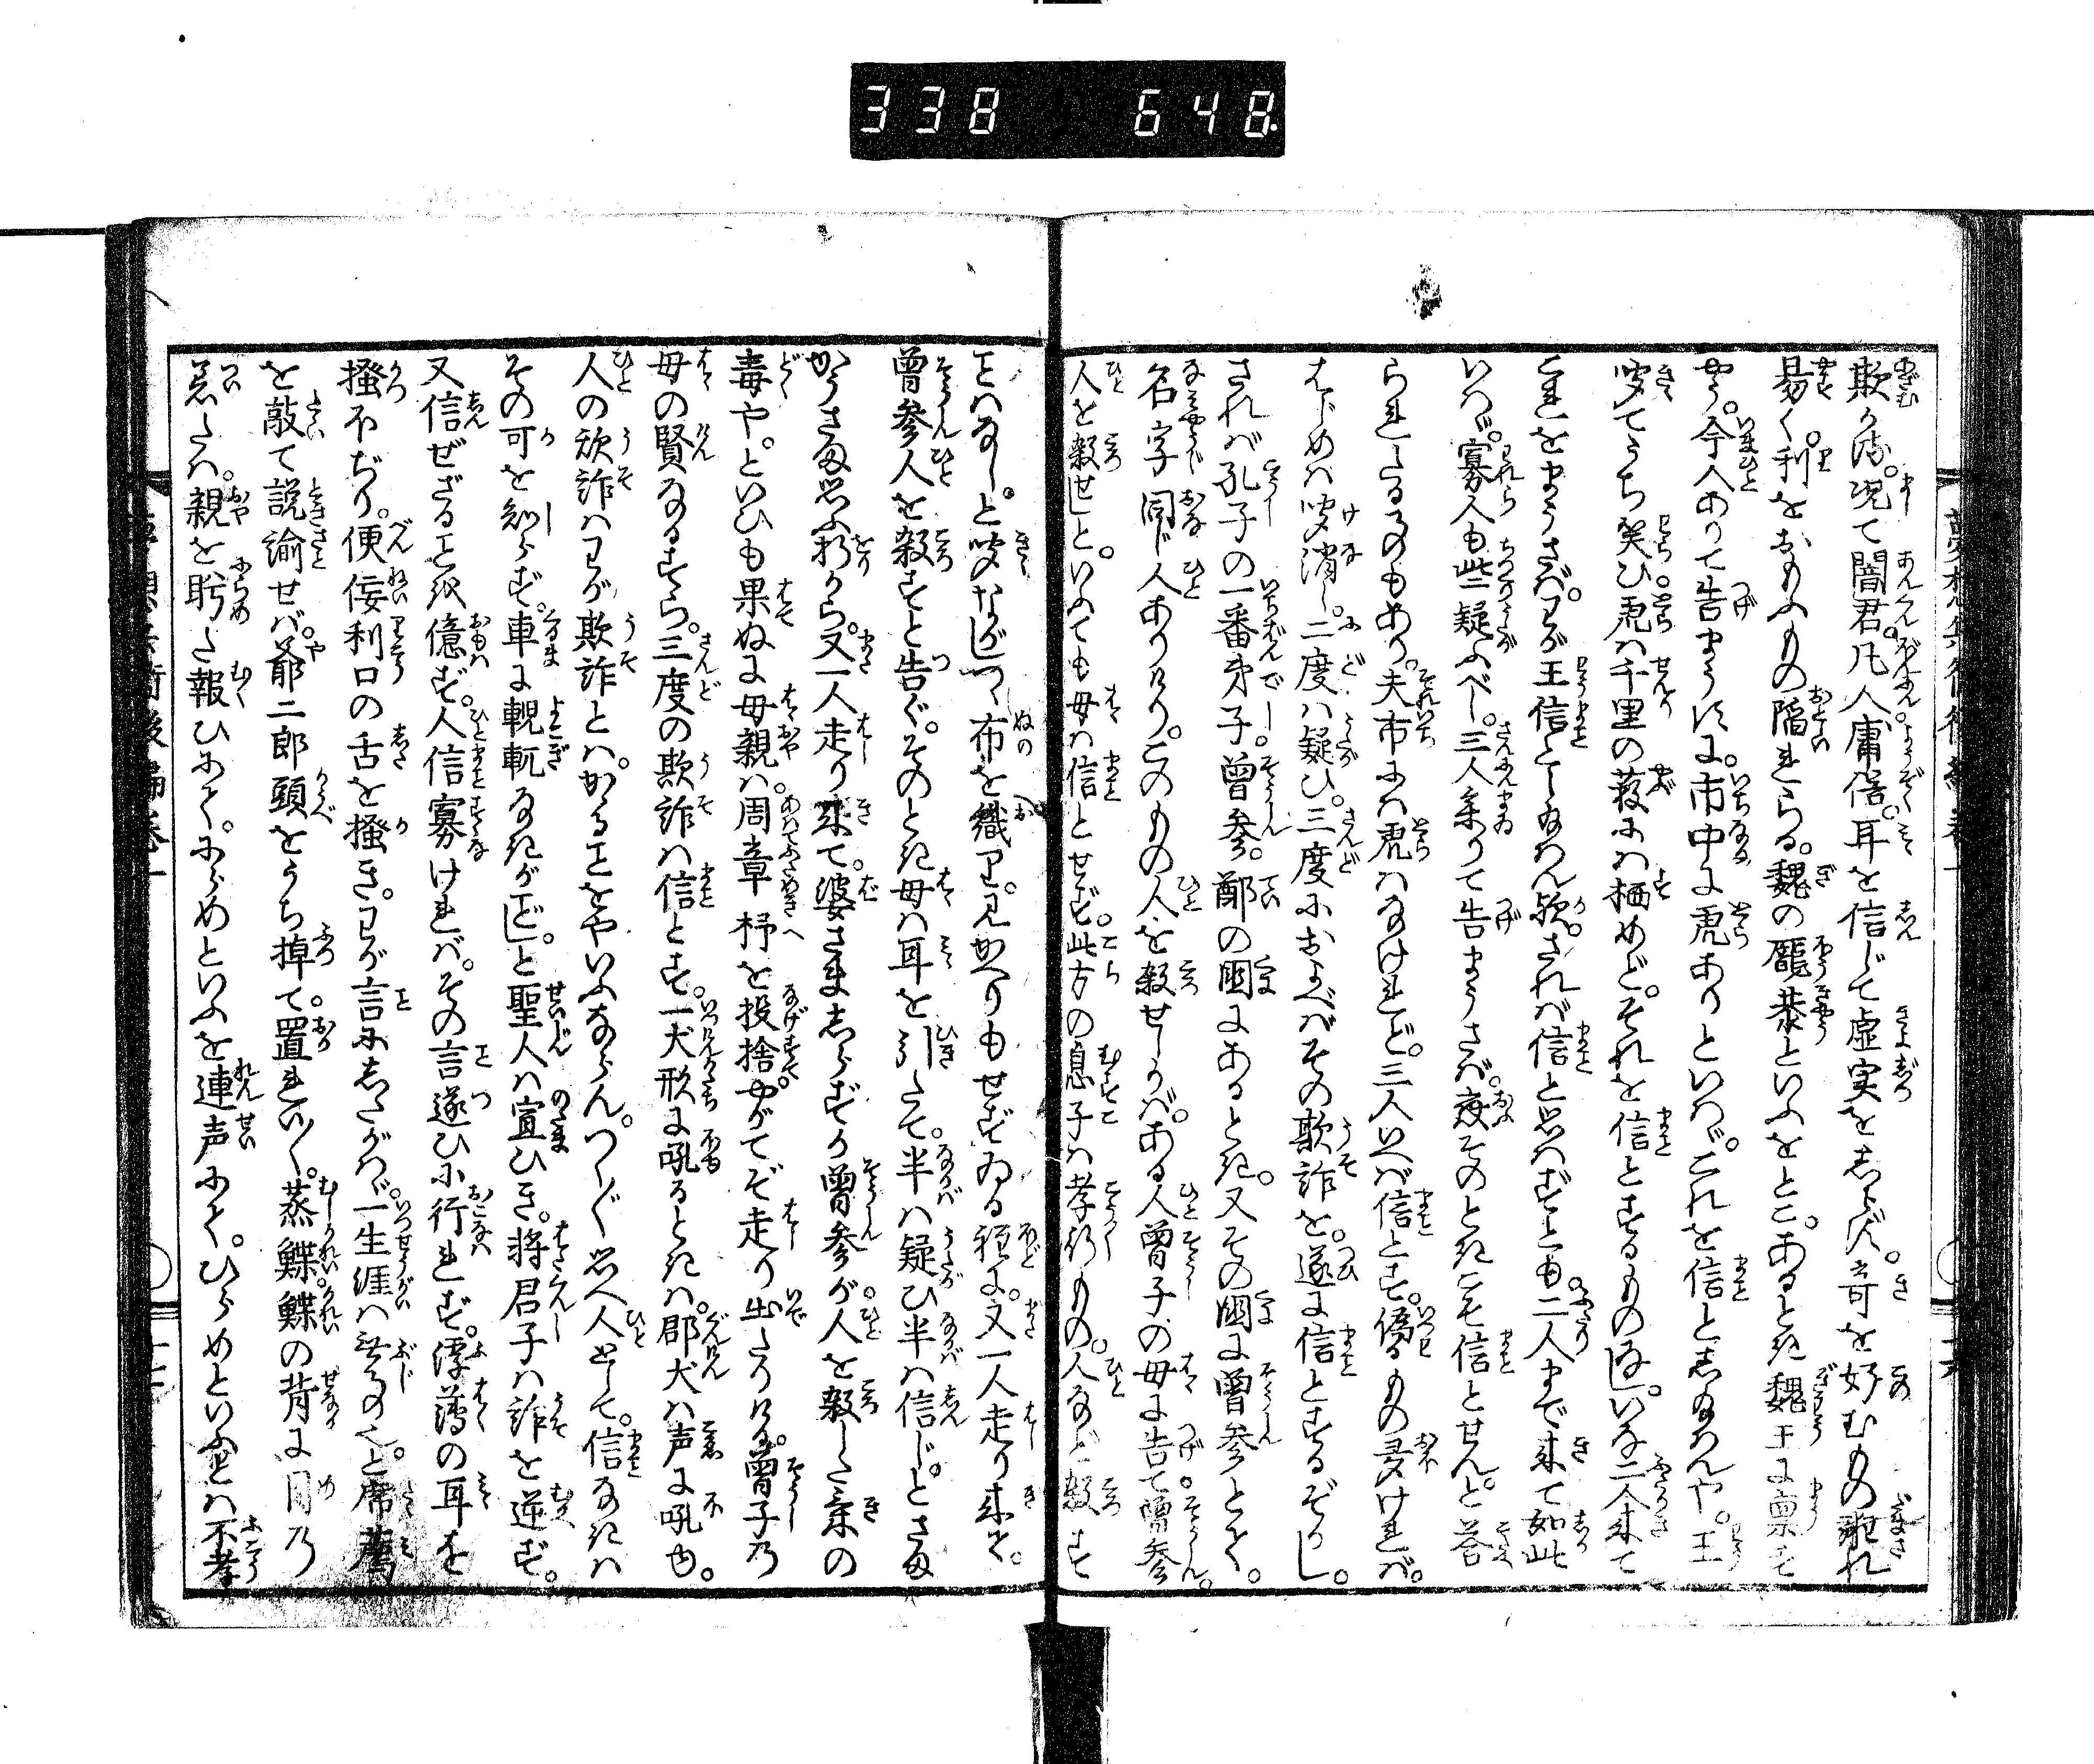 338 648
欺く法。況て闇君。凡人庸俗。耳を信じて虚実をしらず。奇を好むもの誑れ
易く。利をおもふもの陥れらる。魏の龐恭といふをとこ。あるとき魏王に稟す
やう。今人ありて告まうすに。市中に虎ありといはゞ。これを信としたまはんや。王
聞てうち笑ひ。虎は千里の薮には栖めど。それを信とするものなし。いな二人来て
これをまうさば。わが王信としたまはん歟。されば信と思はずとも。二人まで来て如此
いはゞ。寡人も些疑ふべし。三人来りて告まうさば。寔そのときこそ信とせんと。答
られしたるものもあり。夫市には虎はなけれど。三人いへば信とす。偽るもの多ければ。
はじめは聞消し。二度は疑ひ。三度におよべばその欺詐を。遂に信とするぞかし。
されば孔子の一番弟子。曽参。鄭の国にあるとき。又その国に曽参とて。
名字同じ人ありけり。このもの人を殺せしかば。ある人曽子の母に告て。曽参
人を殺せしと。いふても母は信とせず。此方の息子は孝行もの。人など殺す
ことはなしと。聞ながしつゝ布を織り。見かへりもせずゐる程に。又一人走り来て。
曽参人を殺すと告ぐ。そのとき母は耳を引たて。半は疑ひ半は信じ。とさま
かうさま思ふ折から。又一人走り来て。婆さましらずか曽参が。人を殺した氣の
毒や。といひも果ぬに母親は。周章杼を投捨。やがてぞ走り出たりける。曽子の
母の賢なるすら。三度の欺詐は信とす。一犬形に吼るときは。郡犬は声に吼也。
人の欺詐はわが欺詐とは。かゝることをやいふならん。つく／＼思へ人として。信なきは
その可を知らず。車に輗軏なきがごとし。と聖人は宣ひき。将君子は詐を逆ず。
又信ぜざること
を億ず。人信寡ければ。その言遂ひに行れず。浮薄の耳を
掻ほぢり。便佞利口の舌を掻き。わが言にしたがはゞ。一生涯は無事のこと。と席薦
を敲て説諭せば。爺二郎頭をうち掉て。置れい／＼。蒸鰈鰈の背に目の
着たは。親を睨た報ひにて。にらめといふを連声にて。ひらめといふとは不孝